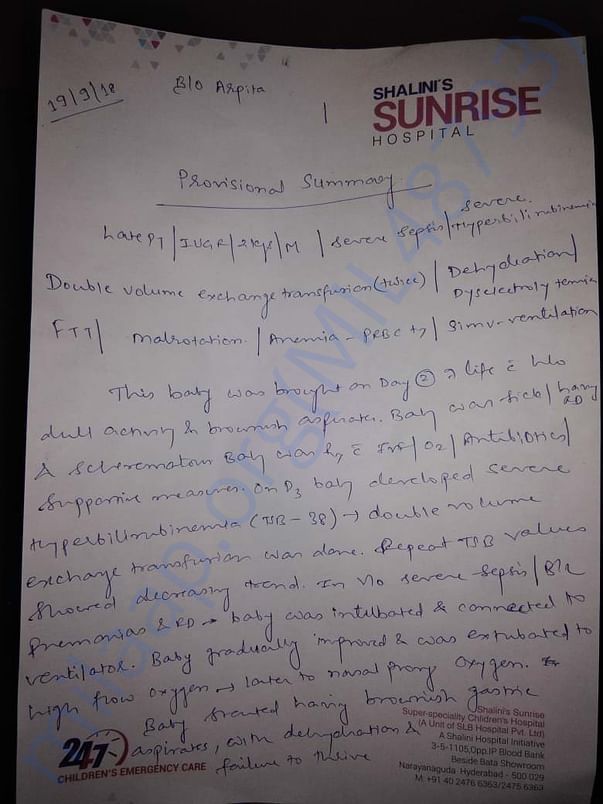 19/9/18
B/O Arpita
SHALINI'S
SUNRISE
HOSPITAL
Provisional Summary
Late PT | IUGR | 2kgs | M | severe sepsis | severe Hyperbilirubinemia
Double volume exchange transfusion (twice) | Dehydration |
Dyselectrolytemia
FTT | Malrotation | Anemia - PRBC | SIMV - ventilation
This baby was brought on Day ② of life c̄ h/o
dull activity & brownish aspirates. Baby was sick | having
RD
& Baby was c̄ IVF | O2 | Antibiotics |
Supportive measures. On D3 baby developed severe
Hyperbilirubinemia (TSB - 38) → double volume
exchange transfusion was done. Repeat TSB values
showed decreasing trend. In v/o severe sepsis | B/L
Pnemonias & RD → baby was intubated & connected to
ventilator. Baby gradually improved & was extubated to
high flow oxygen → later to nasal prong oxygen.
Baby started having brownish gastric
aspirates, with dehydration &
failure to thrive
24/7
CHILDREN'S EMERGENCY CARE
Shalini's Sunrise
Super-speciality Children's Hospital
(A Unit of SLB Hospital Pvt. Ltd)
A Shalini Hospital Initiative
3-5-1105,Opp.IP Blood Bank
Beside Bata Showroom
Narayanaguda Hyderabad - 500 029
M: +91 40 2476 6363/2475 6363